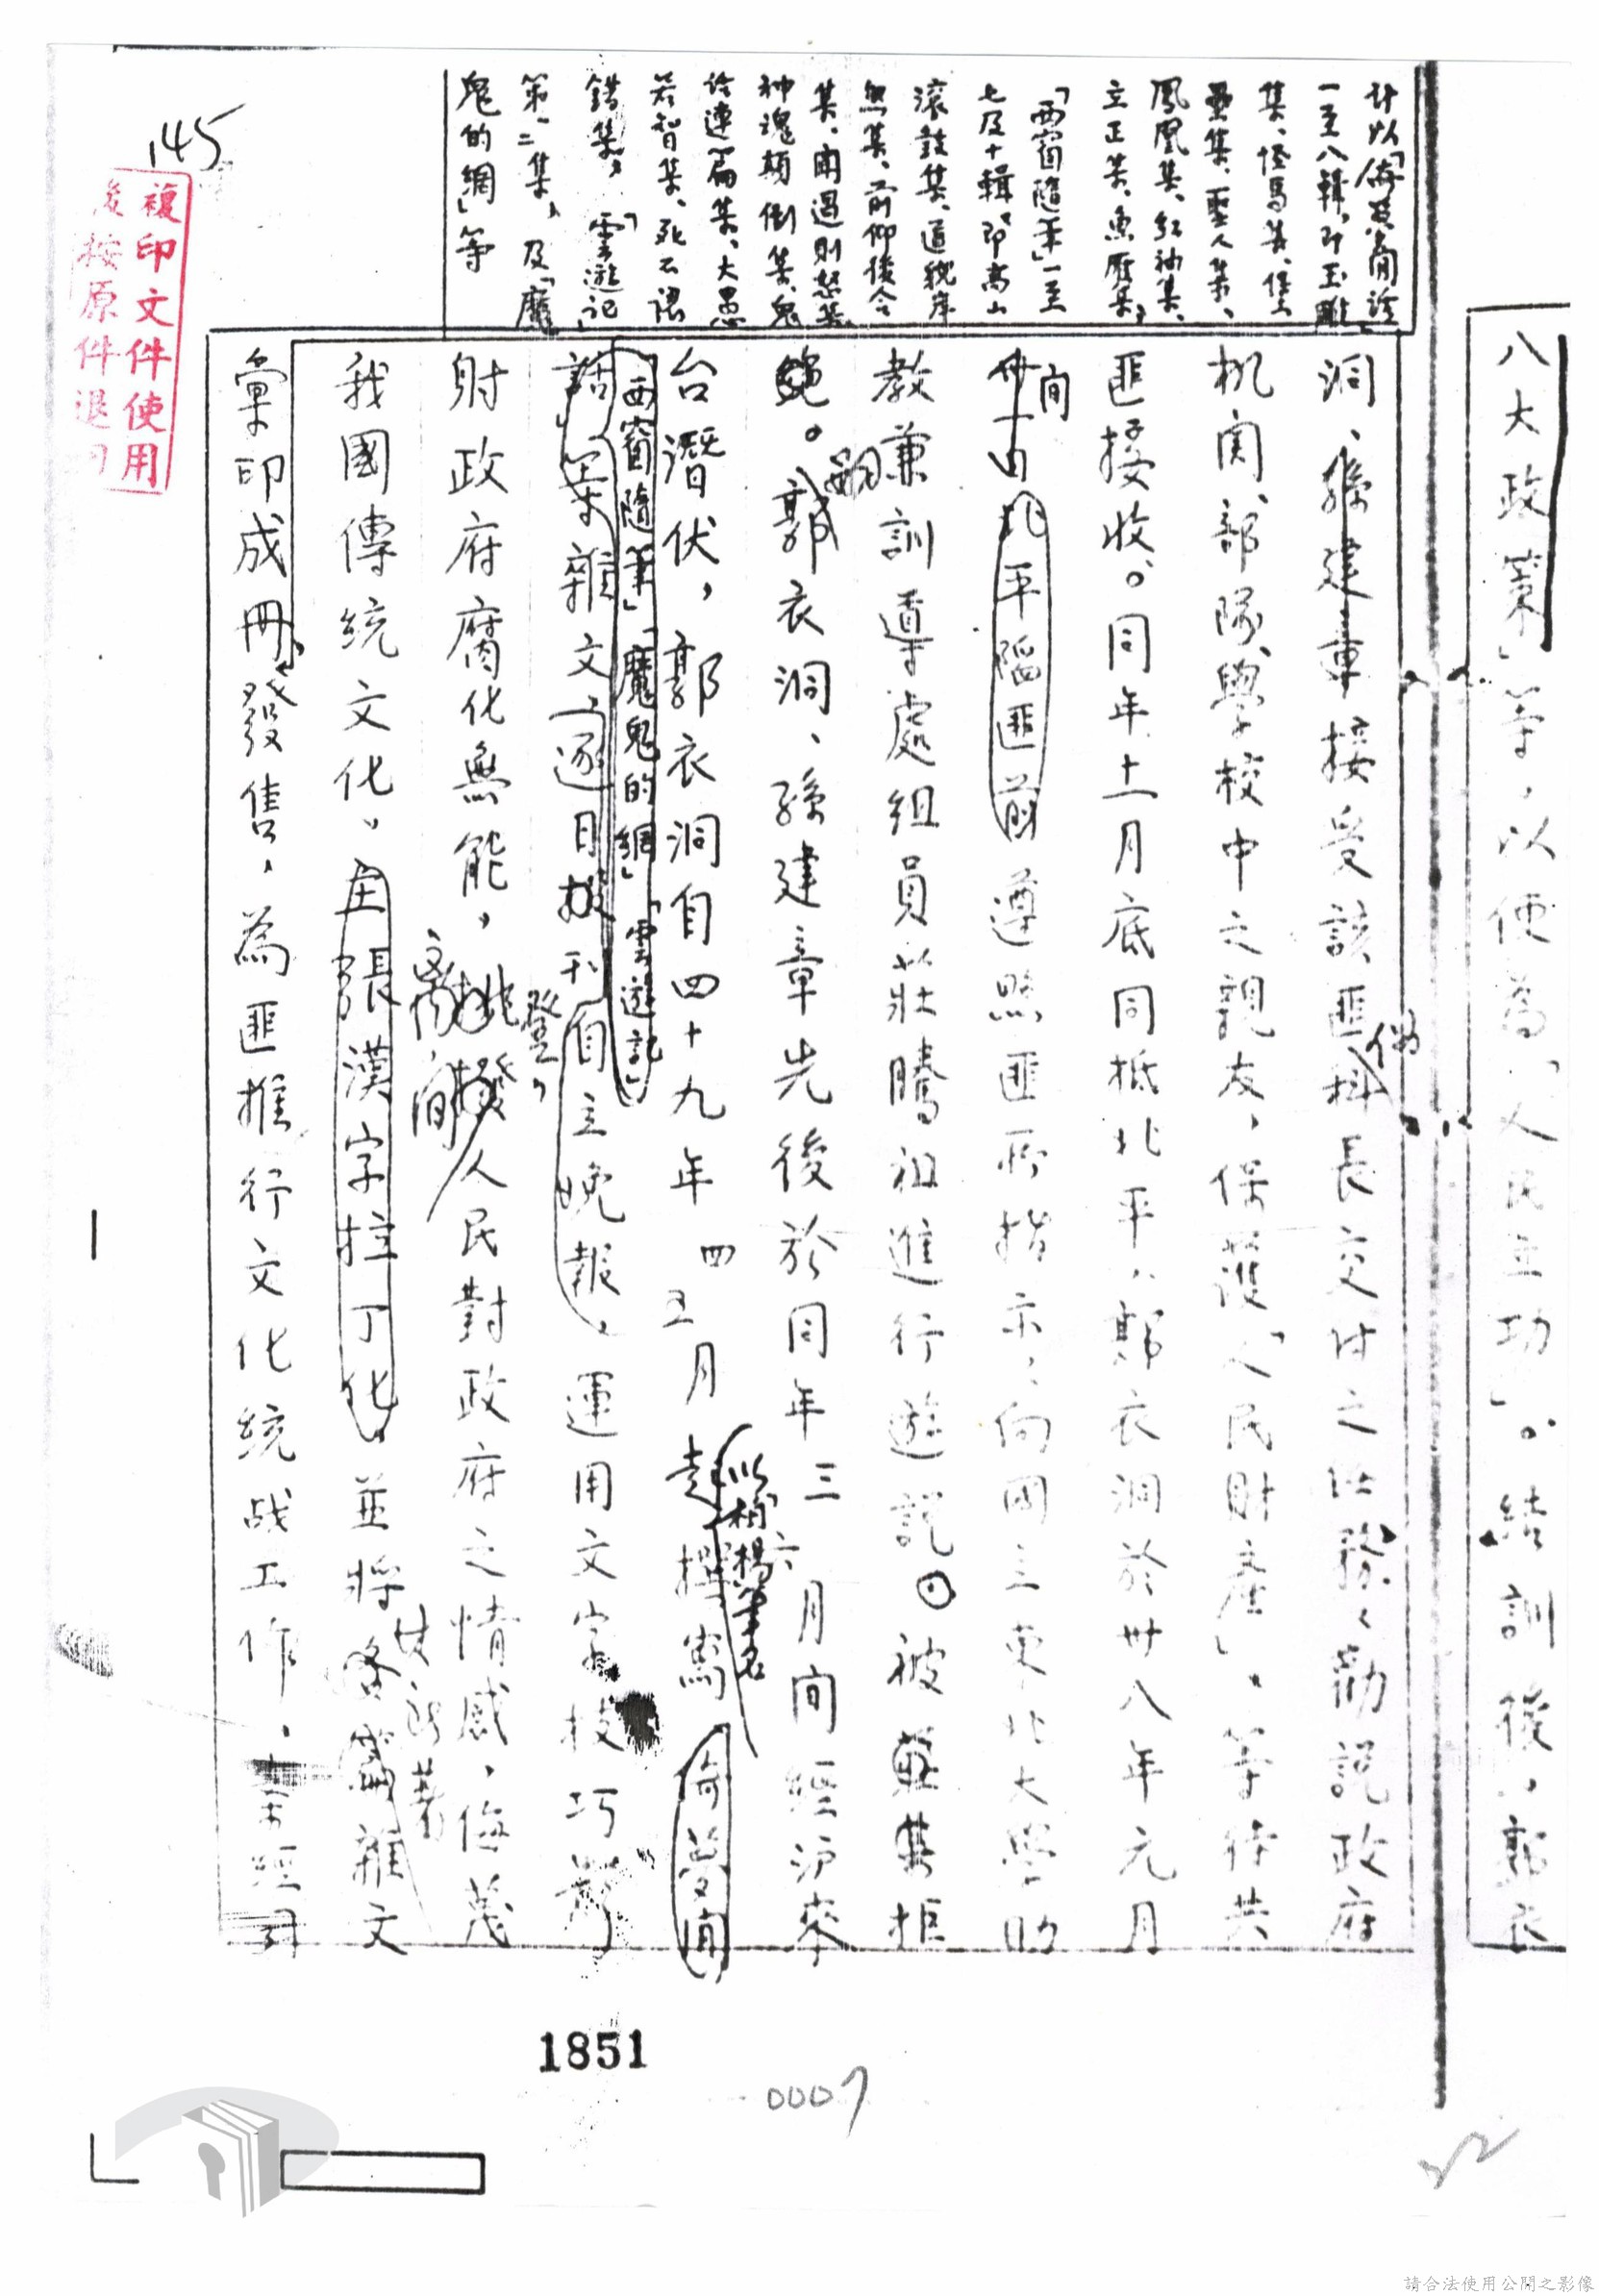 八大政策」等,以便為「人民立功」。結訓後,郭衣
洞、孫建章接受該匪偽科長交付之任務、勸說政府
机関、部隊、學校中之親友,保護「人民財產」。等待共
匪接收。同年十一月底同抵北平,郭衣洞於卅八年元月
間由北平陷匪前遵照匪所指示,向國立東北大學助
教兼訓導處組員莊騰祖進行遊說。被莊某拒
絕。郭衣洞、孫建章先後於同年三、六月間經滬來
台潛伏,郭衣洞自四十九年四五月起撰寫倚夢閒
以「柏楊」筆名
「西窗隨筆」「魔鬼的網」「雲遊記」
話等雜文逐日披刊自立晚報,運用文字技巧影
登,
射政府腐化無能,挑撥人民對政府之情感,侮蔑
離間
我國傳統文化,主張漢字拉丁化,並將各篇雜文
其所著
彙印成冊發售,為匪推行文化統战工作。案經
計以「倚夢閒話」
一至八輯,即玉雕
集、怪馬集、堡
壘集、聖人集、
鳳凰集、紅袖集、
立正集、魚雁集,
「西窗隨筆」一至
七及十輯,即高山
滾鼓集、道貌岸
然集、前仰後合
集、聞過則怒集
神魂顛倒集、鬼
話連篇集、大愚
若智集、死不認
錯集,「雲遊記」
第一二集,及「魔
鬼的網」等
145
複印文件使用
後按原件退
1851
0007
22
請合法使用公開之影像